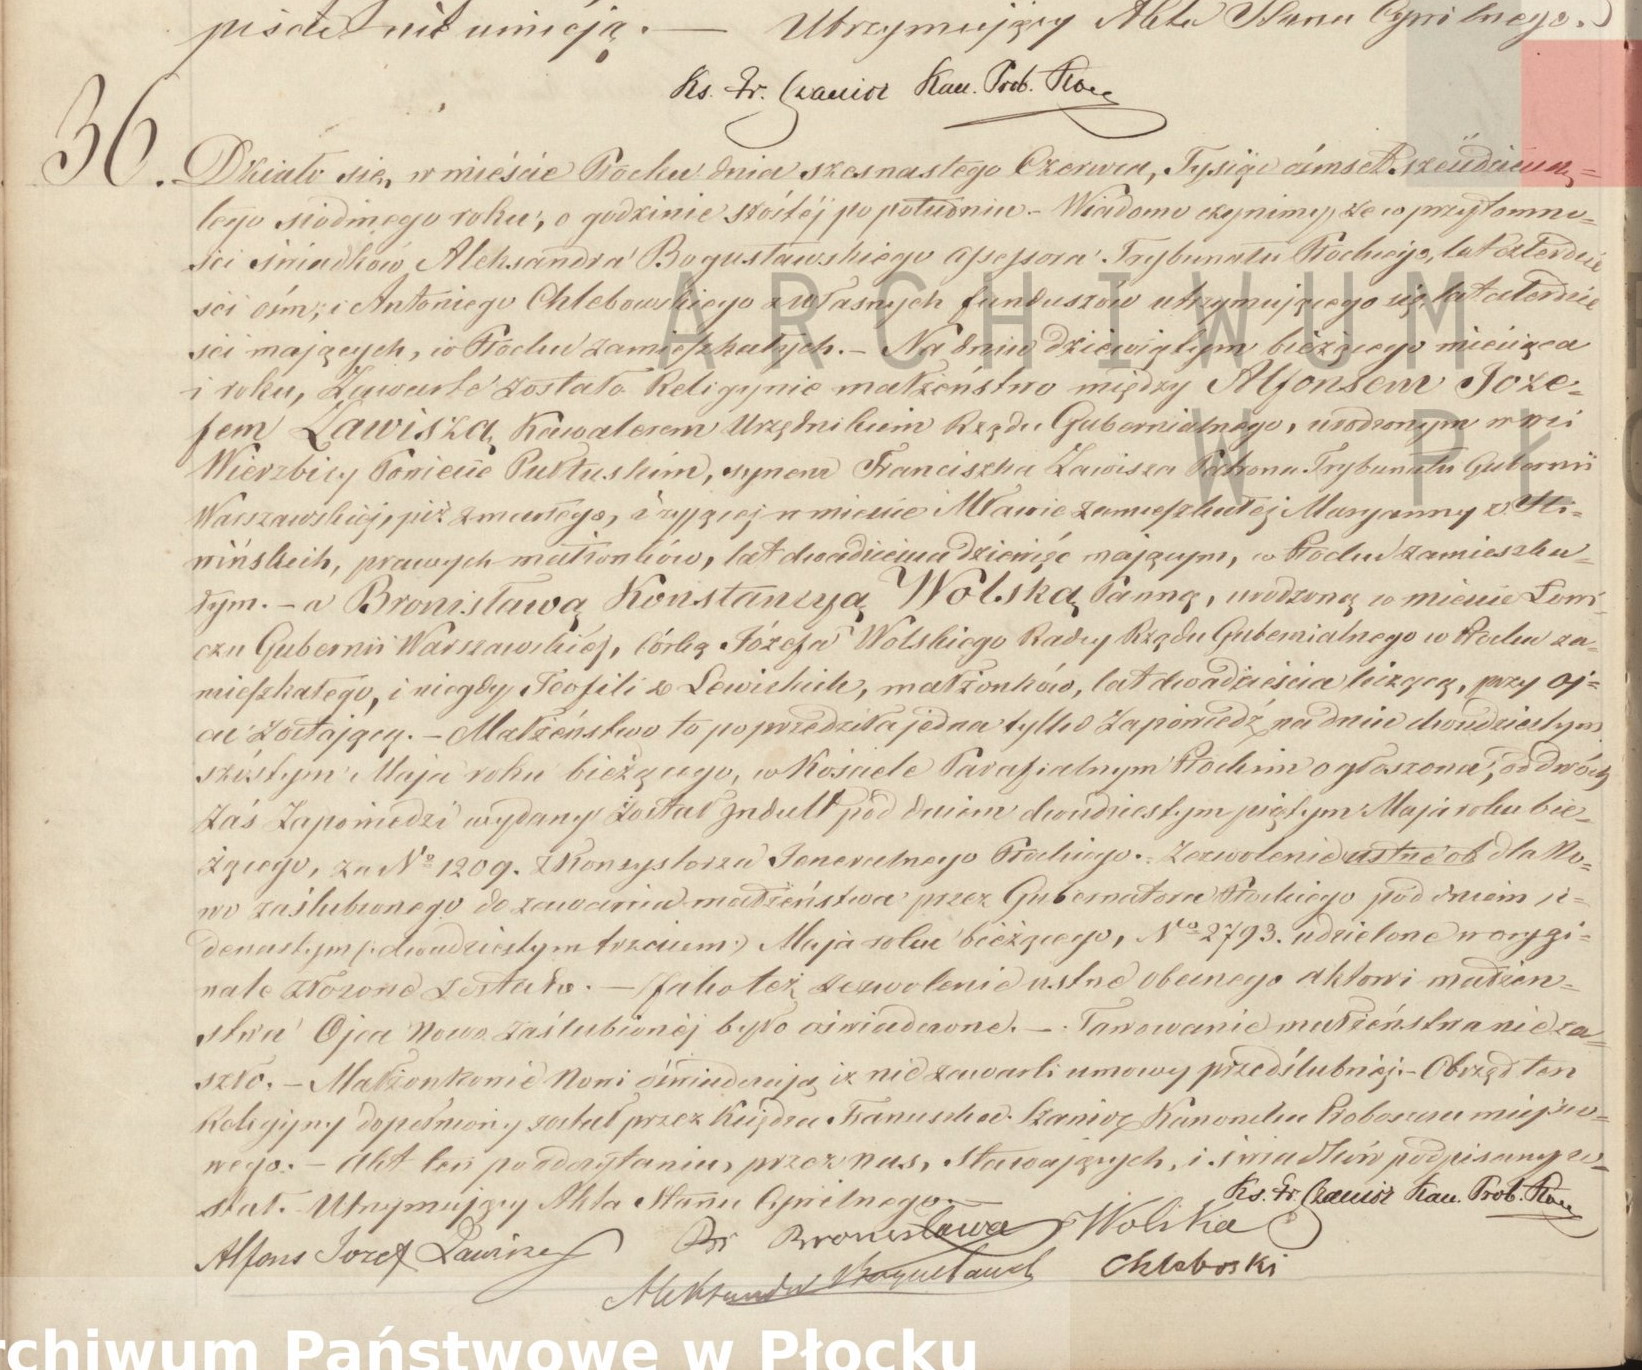 pisać nie umieją. — Utrzymujący Akta Stanu Cywilnego.
Ks. Fr. Kan. Prob. Płoc
36.
Działo się, w mieście Płocku dnia szesnastego Czerwca, Tysiąc ośmset sześćdziesią=
tego siódmego roku, o godzinie szóstéj po południu. – Wiadomo czynimy, że w przytomno=
ści świadków, Aleksandra Bogusławskiego Assessora Trybunału Płockiego, lat czterdzie
ści ośm, i Antoniego Chlebowskiego z własnych funduszów utrzymującego się, lat czterdzie
ści mających, w Płocku zamieszkałych. – Na dniu dziewiątym bieżącego miesiąca
i roku, Zawarte zostało Religijnie małżeństwo między Alfonsem Joze=
fem Zawiszą Kawalerem Urzędnikiem Rządu Gubernialnego, urodzonym w wsi
Wierzbicy Powiecie Pułtuskim, synem Franciszka Zawisza Patrona Trybunału Gubernii
Warszawskiéj, już zmarłego, i żyjącej w mieście Mławie zamieszkałej Maryanny z
nińskich, prawych małżonków, lat dwadzieścia dziewięć mającym, w Płocku zamieszka=
łym. – a Bronisławą Konstancyą Wolską Panną, urodzoną w mieście Łowi
czu Gubernii Warszawskiéj, córką Józefa Wolskiego Radcy Rządu Gubernialnego w Płocku za=
mieszkałego, i niegdy Teofili z Lewickich, małżonków, lat dwadzieścia liczącą, przy Oj=
cu zostającą. – Małżeństwo to poprzedziła jedna tylko Zapowiedź, na dniu dwudziestym
szóstym Maja roku bieżącego, w Kościele Parafialnym Płockim ogłoszona, od dwóch
zaś Zapowiedzi wydany został Indult pod dniem dwudziestym piątym Maja roku bie=
żącego, za No 1209. z Konsystorza Jeneralnego Płockiego. Zezwolenie ustne ob dla No=
wo zaślubionego do zawarcia małżeństwa przez Gubernatora Płockiego pod dniem je=
denastym (: dwudziestym trzecim :) Maja roku bieżącego, No 2793. udzielone w orygi=
nale złożone zostało. – Jako też zezwolenie ustne obecnego aktowi małżeń=
stwa Ojca Nowo Zaślubionéj było oświadczone. – Tamowanie małżeństwa nie za=
szło. – Małżonkowie Nowi oświadczają iż nie zawarli umowy przedślubnéj. – Obrzęd ten
Religijny dopełniony został przez Księdza Franciszka Kanonika Proboszcza miejsco=
wego. – Akt ten po odczytaniu, przez nas, Stawających, i świadków podpisany zo=
stał. Utrzymujący Akta Stanu Cywilnego.
Ks. Fr. Kan. Prob. Płoc
Alfons Jozef Zawisza Bronisława Wolska
Aleksander Bogusławski Chleboski
ARCHIWUM
W P
rchiwum Państwowe w Płocku